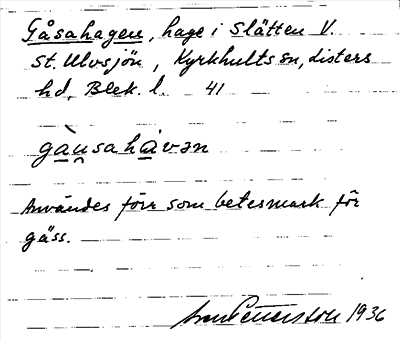 Gåsahagen, hage i Slätten V.
St. Ulvsjön, Kyrkhults sn, Listers
hd, Blek. l. 41
gàu̯sahávən
Användes förr som betesmark för
gäss.
1936